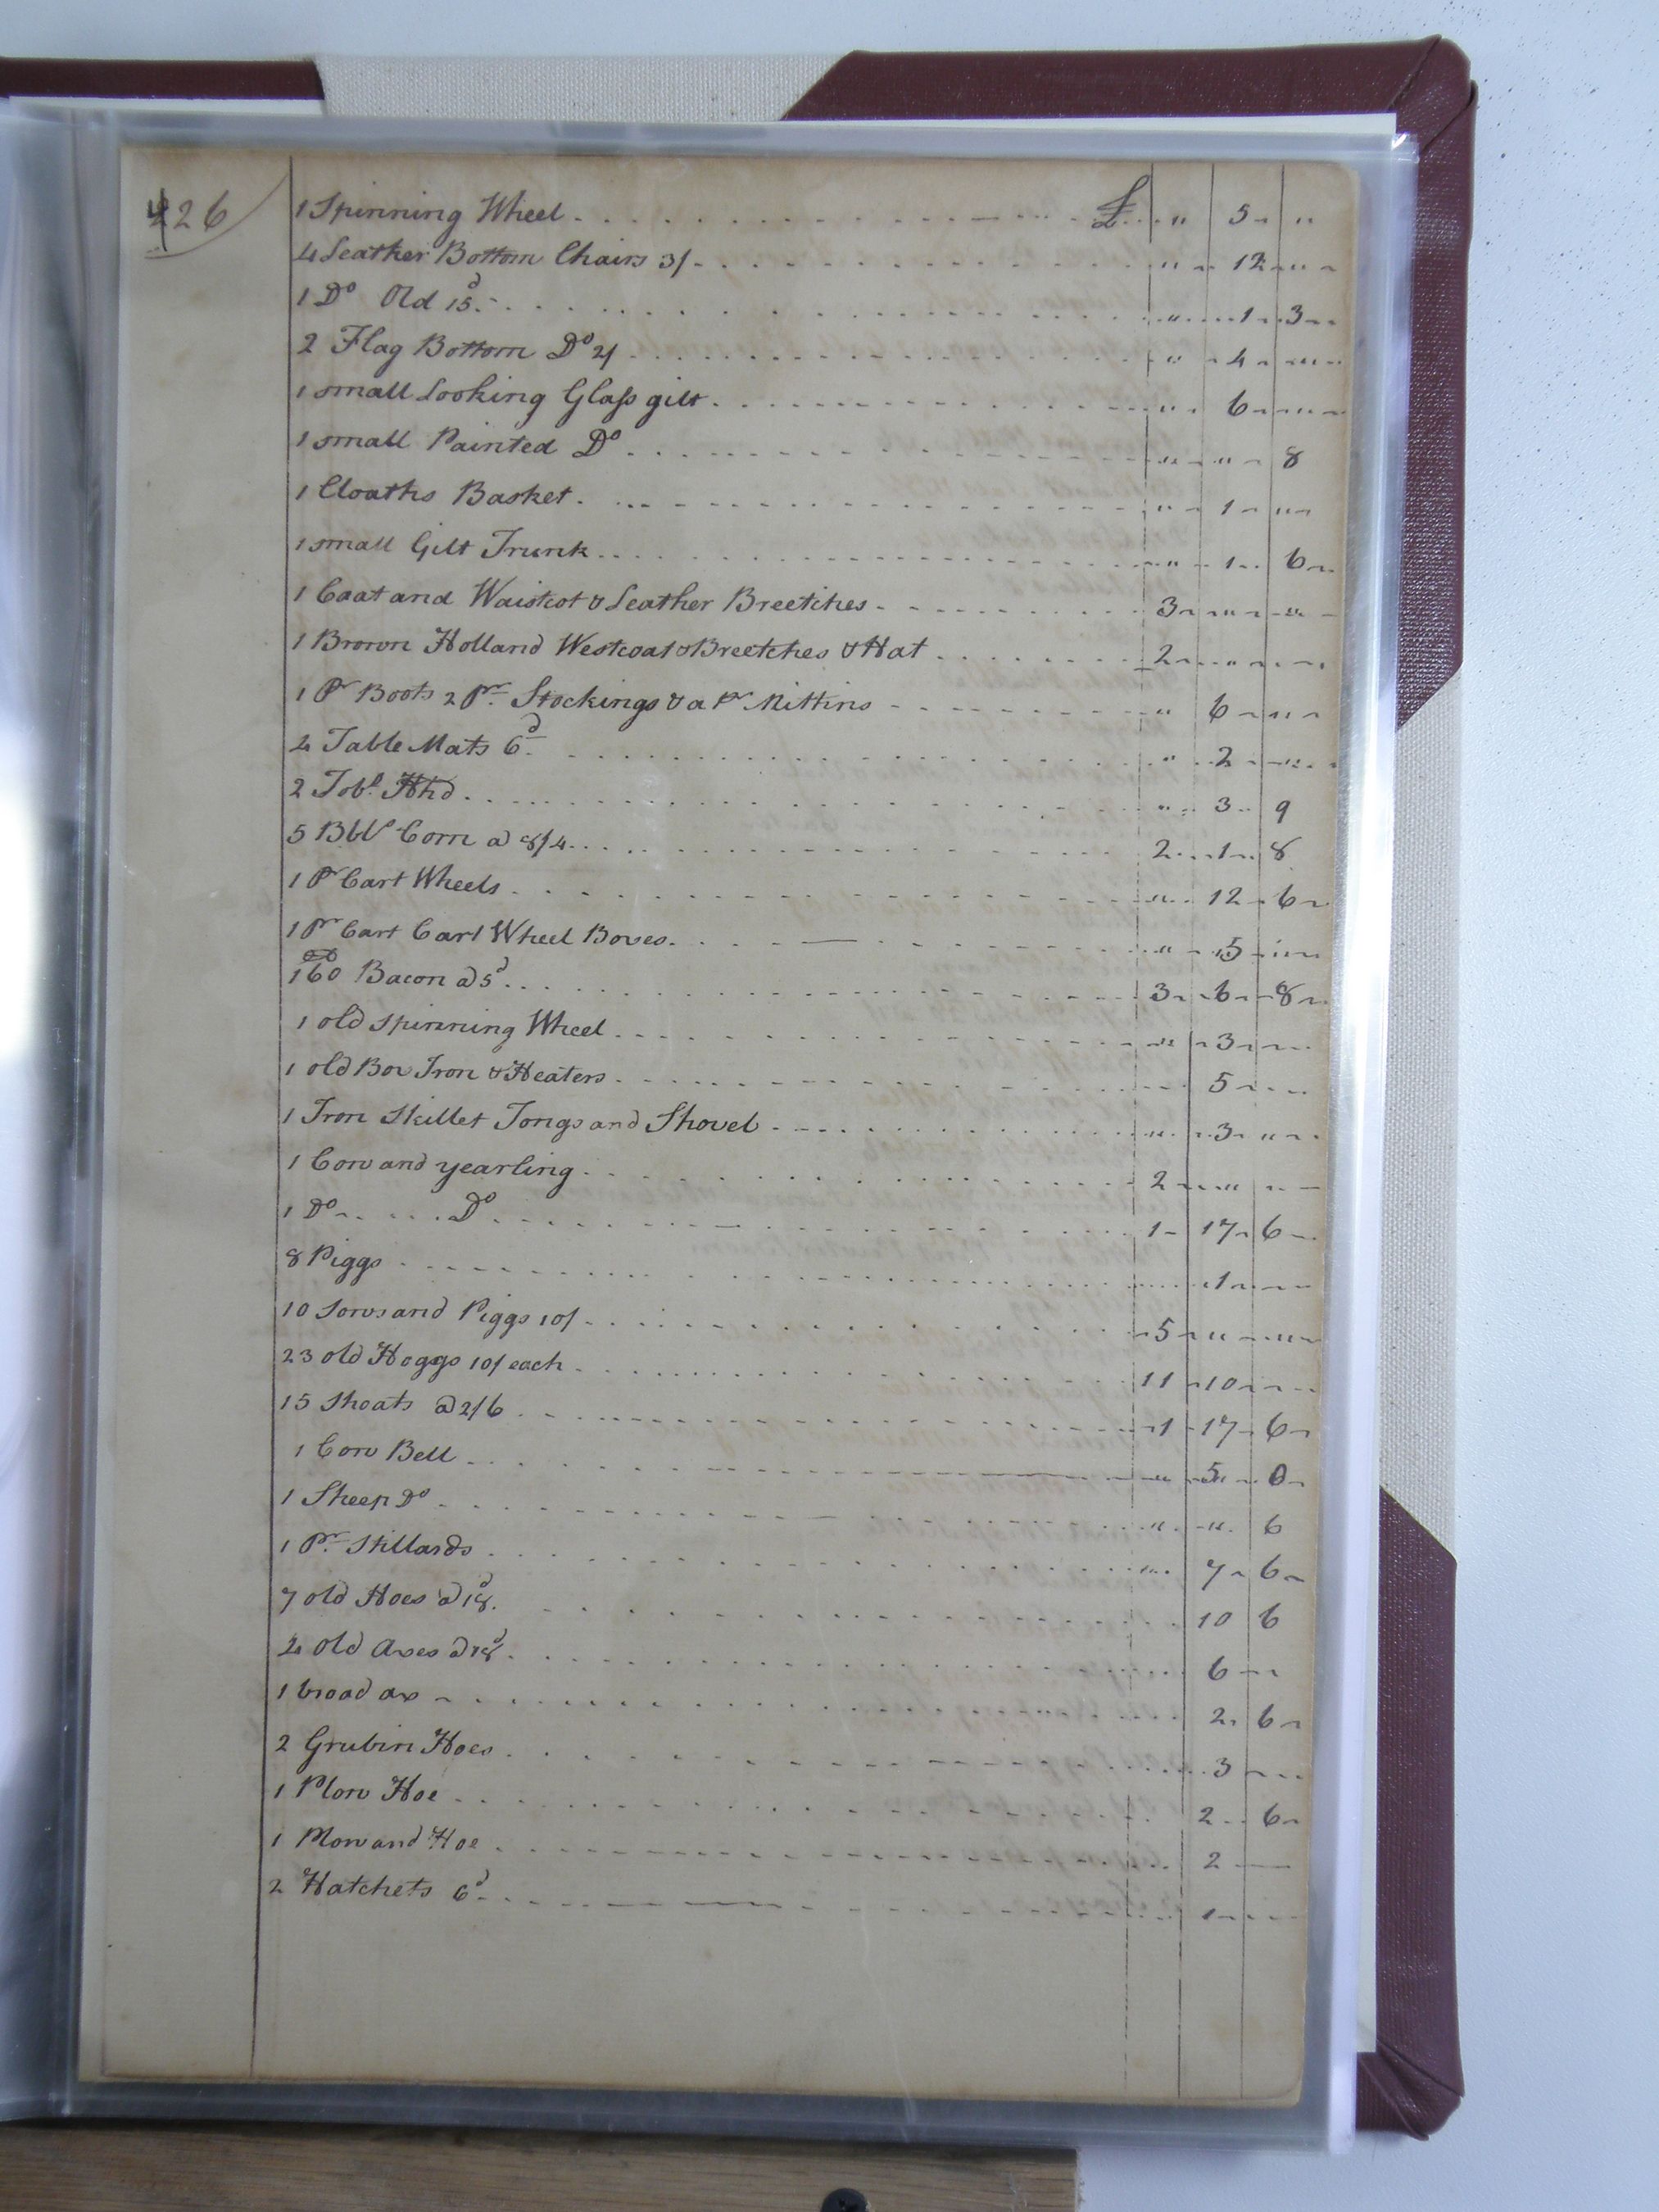 226
1 Spinning Wheel £ " 5 "
4 Leather Bottom Chairs 3/ " 12 "
1 Do Old 15d " 1 3
2 Flag Bottom Do 2/ " 4 "
1 small Looking Glass gilt " 6 "
1 small Painted Do " " 8
1 Cloaths Basket " 1 "
1 small Gilt Trunk " 1 6
1 Coat and Waistcot & Leather Breetches 3 " "
1 Brown Holland Westcoat & Breetches & Hat 2 " "
1 Pr Boots 2 Pr Stockings & a Pr Mittins " 6 "
4 Table Mats 6d " 2 "
2 Tobo Hhd " 3 9
5 Bbls Corn a 8/4 2 1 8
1 Pr Cart Wheels " 12 6
1 Pr Cart Cart Wheel Boxes " 5 "
160 Bacon a 5d 3 6 8
1 old spinning Wheel " 3
1 old Box Iron & Heaters 5
1 Iron Skillet Tongs and Shovel " 3 "
1 Cow and yearling 2 " "
1 Do Do 1 17 6
8 Piggs 1
10 Sows and Piggs 10/ 5 " "
23 old Hoggs 10/ each 11 10
15 Shoats a 2/6 1 17 6
1 Cow Bell " 5 0
1 Sheep Do " " 6
1 Pr Stillards " 7 6
7 old Hoes a 18d 10 6
4 Old Axes a 18d 6
1 broad ax 2 6
2 Grubin Hoes 3
1 Plow Hoe 2 6
1 Plow and Hoe 2
2 Hatchets 6d 1